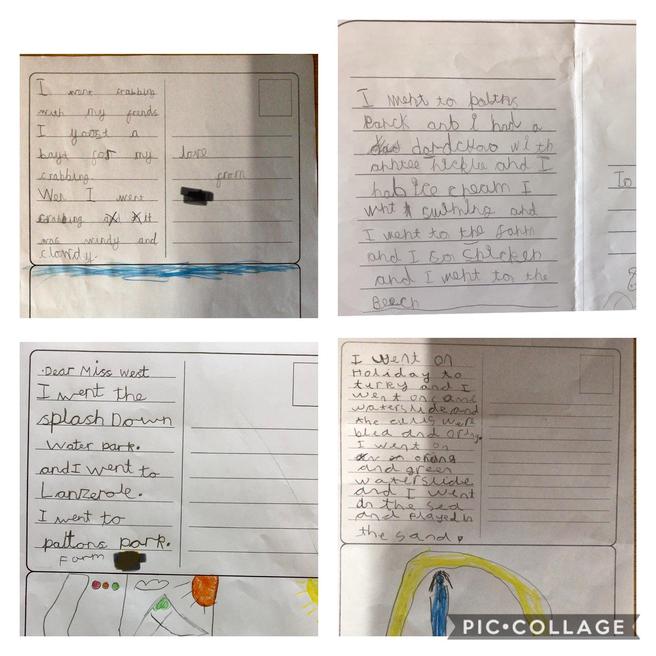 I went crabbing
with my frends
I yoost a
bayt for my
crabbing.
Wen I went
crabbing
was windy and
clowdy.
love
from
I went to
Parck and I had a
with
and I
ice cream I
and
I went to the farm
and I so chicken
and I went to the
Beech
To
Dear Miss West
I went the
splash Down
water park.
and I went to
Lanzerole.
I went to
paltons park.
form
I went on
Holiday to
turky and I
went on a
waterslide and
the were
and
I went on
orang
and green
waterslide
and I went
in the sea
and played in
the sand.
PIC•COLLAGE